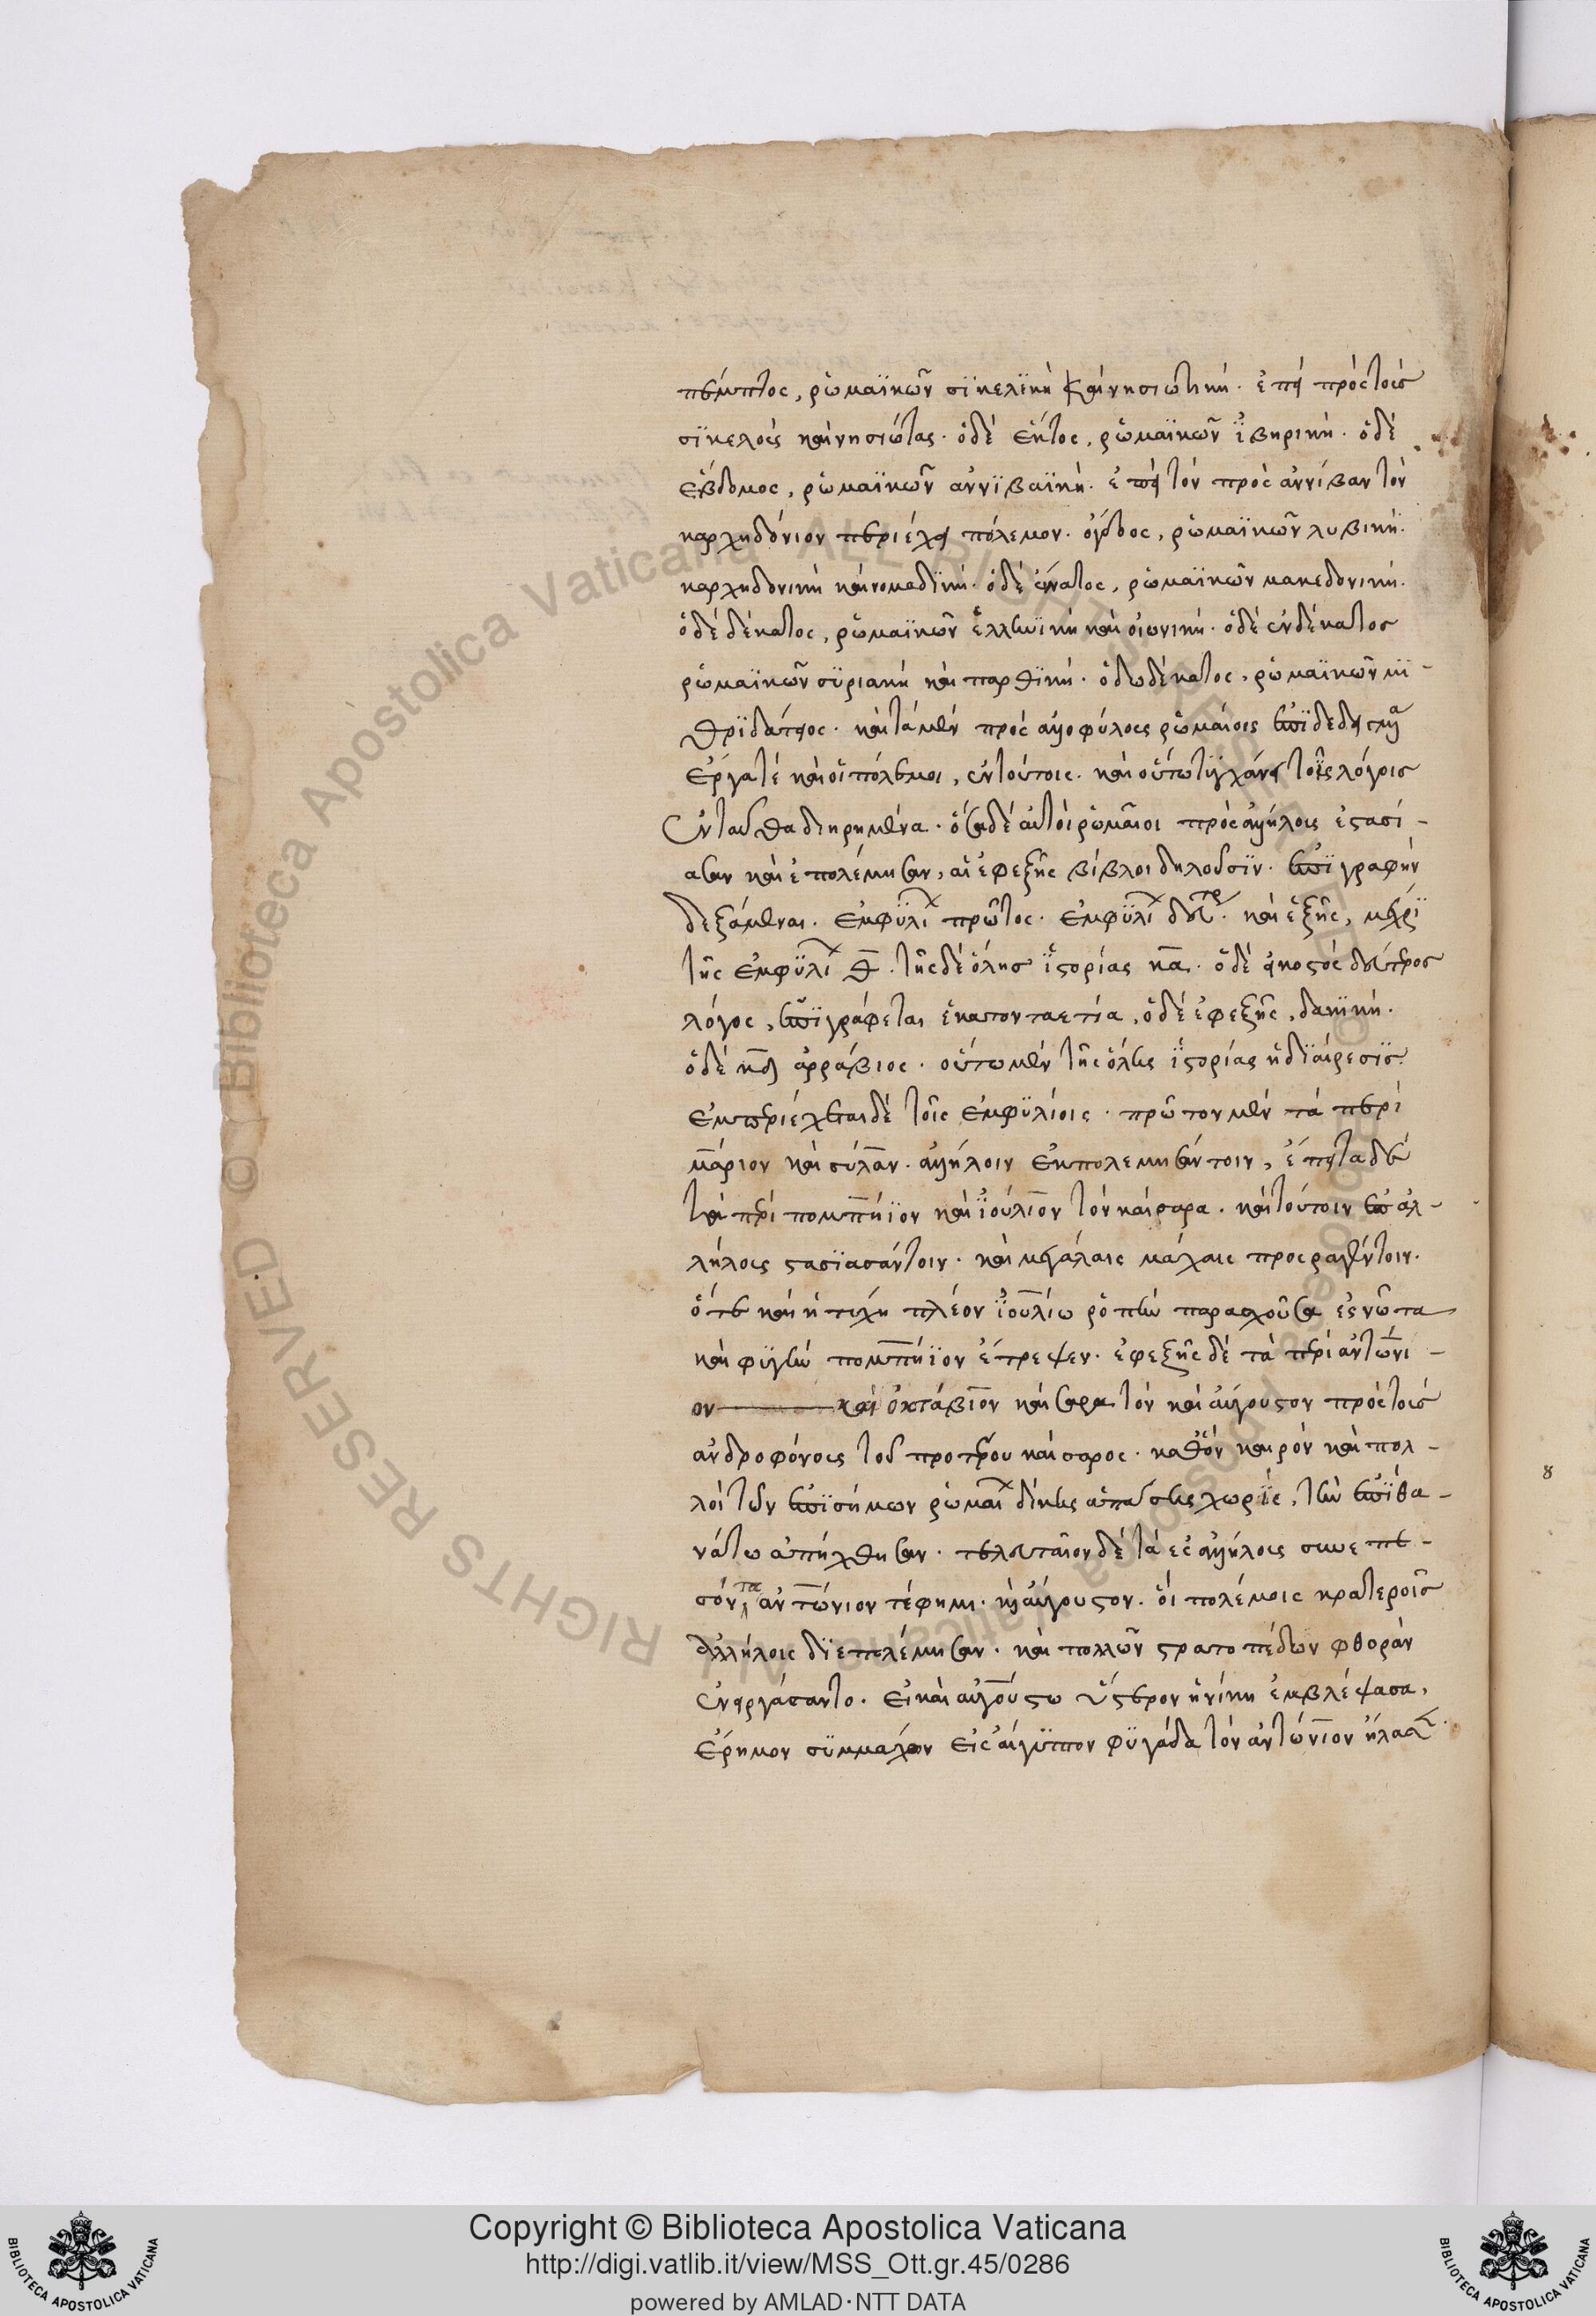 πέμπτος, ρωμαϊκῶν σϊκελϊκὴ καὶ νησιωτικὴ. ἐπεὶ πρὸς τοῖς
σϊκελοῖς καὶ νησιώτας. ὁ δὲ ἕκτος, ρωμαϊκῶν ἰβηρικὴ. ὁ δὲ
ἕβδομος, ρωμαϊκῶν ἀννϊβαϊκὴ. ἐπεὶ τὸν πρὸς ἀννίβαν τὸν
καρχηδόνιον περιέχει πόλεμον. ὄγδοος, ρωμαϊκῶν λυβικὴ.
καρχηδονικὴ καὶ νομαδϊκὴ. ὁ δὲ ἔννατος, ρωμαϊκῶν μακεδονικὴ.
ὁ δὲ δέκατος, ρωμαϊκῶν ἑλληνϊκὴ καὶ οἰωνικὴ. ὁ δὲ ἑνδέκατος
ρωμαϊκῶν σϋριακὴ καὶ παρθϊκὴ. ὁ δωδέκατος, ρωμαϊκῶν μϊ-
θρϊδάτειος. καὶ τὰ μὲν πρὸς ἀλλοφύλοις ρωμαίοις ἐπϊδεδειγμένα
ἔργα τὲ καὶ οἱ πόλεμοι, ἐν τούτοις. καὶ οὕτω τϋγχάνει τοῖς λόγοις
ἐνταῦθα διηρημένα. ὅσα δὲ αὐτοὶ ρωμαῖοι πρὸς ἀλλήλοις ἐστασί-
ασαν καὶ ἐπολέμησαν, αἱ ἐφεξῆς βίβλοι δηλοῦσϊν. ἐπϊγραφὴν
δεξάμεναι. ἐμφϋλί πρῶτος. ἐμφϋλί δεύτρ. καὶ ἑξῆς, μέχρϊ
τῆς ἐμφϋλί θ. τῆς δὲ ὅλης ἱστορίας κα. ὁ δὲ εἰκοστὸς δεύτερος
λόγος, ἐπϊγράφεται ἑκατονταετία, ὁ δὲ ἐφεξῆς, δακϊκὴ.
ὁ δὲ κδ ἀρράβιος. οὕτω μὲν τῆς ὅλης ἱστορίας ἡ δϊαίρεσϊς.
ἐμπεριέχεται δὲ τοῖς ἐμφϋλίοις. πρῶτον μὲν τὰ περὶ
μάριον καὶ σύλαν. ἀλλήλοιν ἐκπολεμησάντοιν, ἔπειτα δὲ
τὰ περὶ πομπήϊον καὶ ἰούλιον τὸν καίσαρα. καὶ τούτοιν ἐπ ἀλ-
λήλοις στασϊασάντοιν. καὶ μεγάλαις μάχαις προσραγέντοιν.
ὅτε καὶ ἡ τύχη πλέον ἰουλίω ροπὴν παρασχοῦσα ἐς νῶτα
καὶ φϋγὴν πομπήϊον ἔτρεψεν. ἐφεξῆς δὲ τὰ περὶ ἀντώνι-
ον καὶ ὀκτάβιον καίσαρα τὸν καὶ αὔγουστον πρὸς τοῖς
ἀνδροφόνοις τοῦ προτέρου καίσαρος. καθὸν καιρὸν καὶ πολ-
λοὶ τῶν ἐπϊσήμων ρωμαί δίκης ἁπάσης χωρϊς, τὴν ἐπϊ θα-
νάτω ἀπήχθησαν. τελευταῖον δὲ τὰ ἐς ἀλλήλοις συμπε-
σόντα ἀντώνιον τέ φημι. καὶ αὔγουστον. οἱ πολέμοις κρατεροῖς
ἀλλήλοις δϊεπολέμησαν. καὶ πολλῶν στρατοπέδων φθορὰν
ἐνειργάσαντο. εἰ καὶ αὐγούστω ὕστερον ἡ νίκη ἐμβλέψασα,
ἔρημον σϋμμάχων εἰς αἴγϋπτον φϋγάδα τὸν ἀντώνιον ἤλασ
8
Copyright © Biblioteca Apostolica Vaticana
http://digi.vatlib.it/view/MSS_Ott.gr.45/0286
powered by AMLAD·NTT DATA